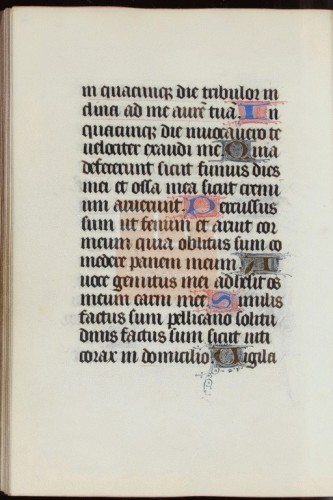 in quacunqꝫ die tribulor in
clina ad me aurē tuā. In
quacunqꝫ die invocavero te
velociter exaudi me. Quia
defecerunt sicut fumus dies
mei et ossa mea sicut cremi
um aruerunt. Percussus
sum ut fenum et aruit cor
meum quia oblitus sum co
medere panem meum. A
voce gemitus mei adhesit os
meum carni mee. Similis
factus sum pellicano solitu
dinis factus sum sicut niti
corax in domicilio. Vigila